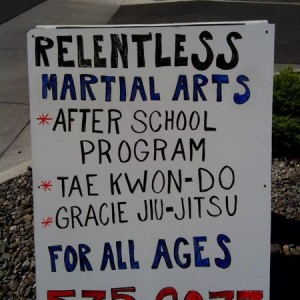 RELENTLESS
MARTIAL ARTS
*AFTER SCHOOL
PROGRAM
*TAE KWON-DO
*GRACIE JIU-JITSU
FOR ALL AGES